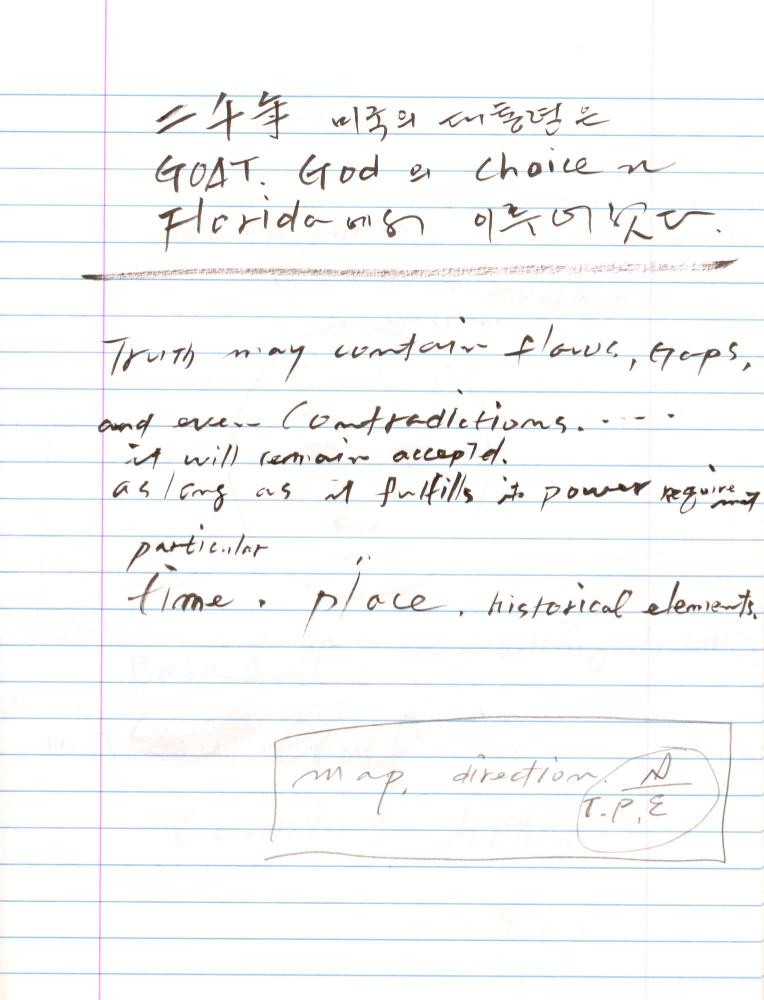 二千年 미국의 대통령은
GOAT. God의 choice 가
Florida에서 이루어졌다.
Truth may contain flaws, Gaps,
and even Contradictions. ....
it will remain accepTd.
as long as it fulfills its power requirement
particular
time. place. historical elements.
map. direction. N
T.P.E